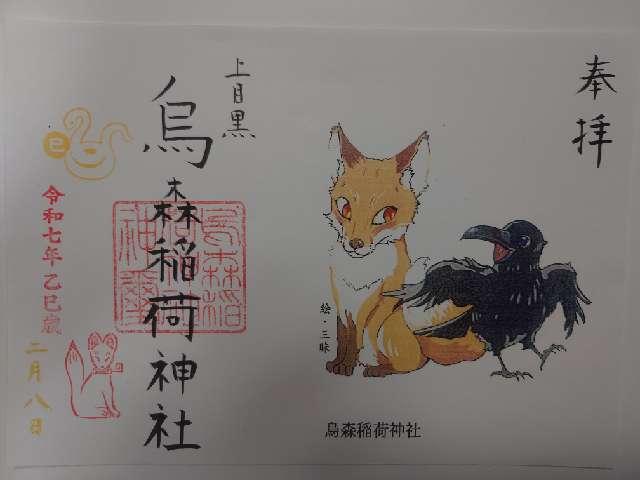 奉拝
上目黒
烏森稲荷神社
巳
令和七年乙巳歳
二月八日
絵・三昧
烏森稲荷神社